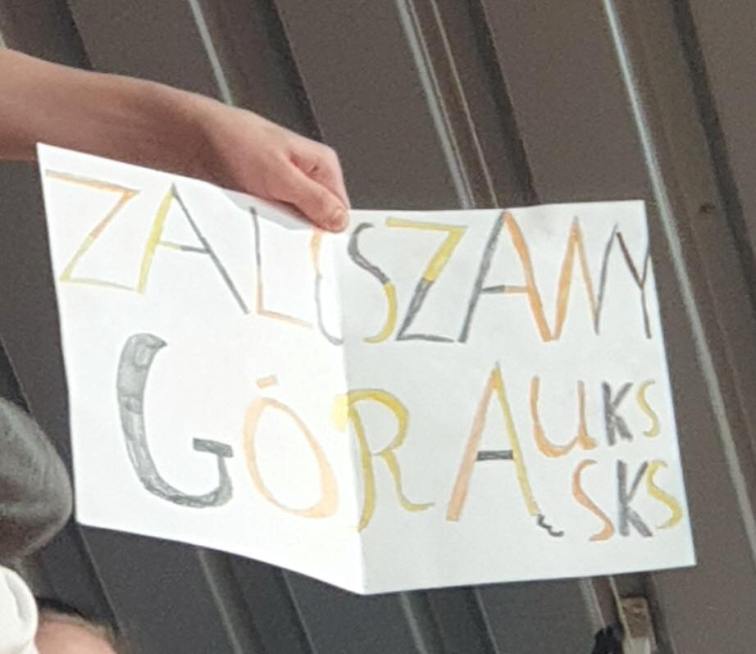 ZALESZANY
GÓRĄ UKS
SKS